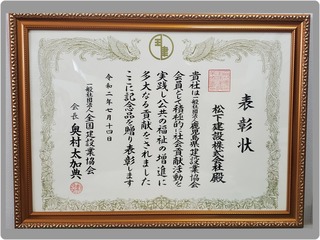 表彰状
松下建設株式会社殿
貴社は一般社団法人鹿児島県建設業協会
会員として積極的に社会貢献活動を
実践し公共の福祉の増進に
多大なる貢献をされました
ここに記念品を贈り表彰します
令和二年七月十四日
一般社団法人全国建設業協会
会長 奥村太加典